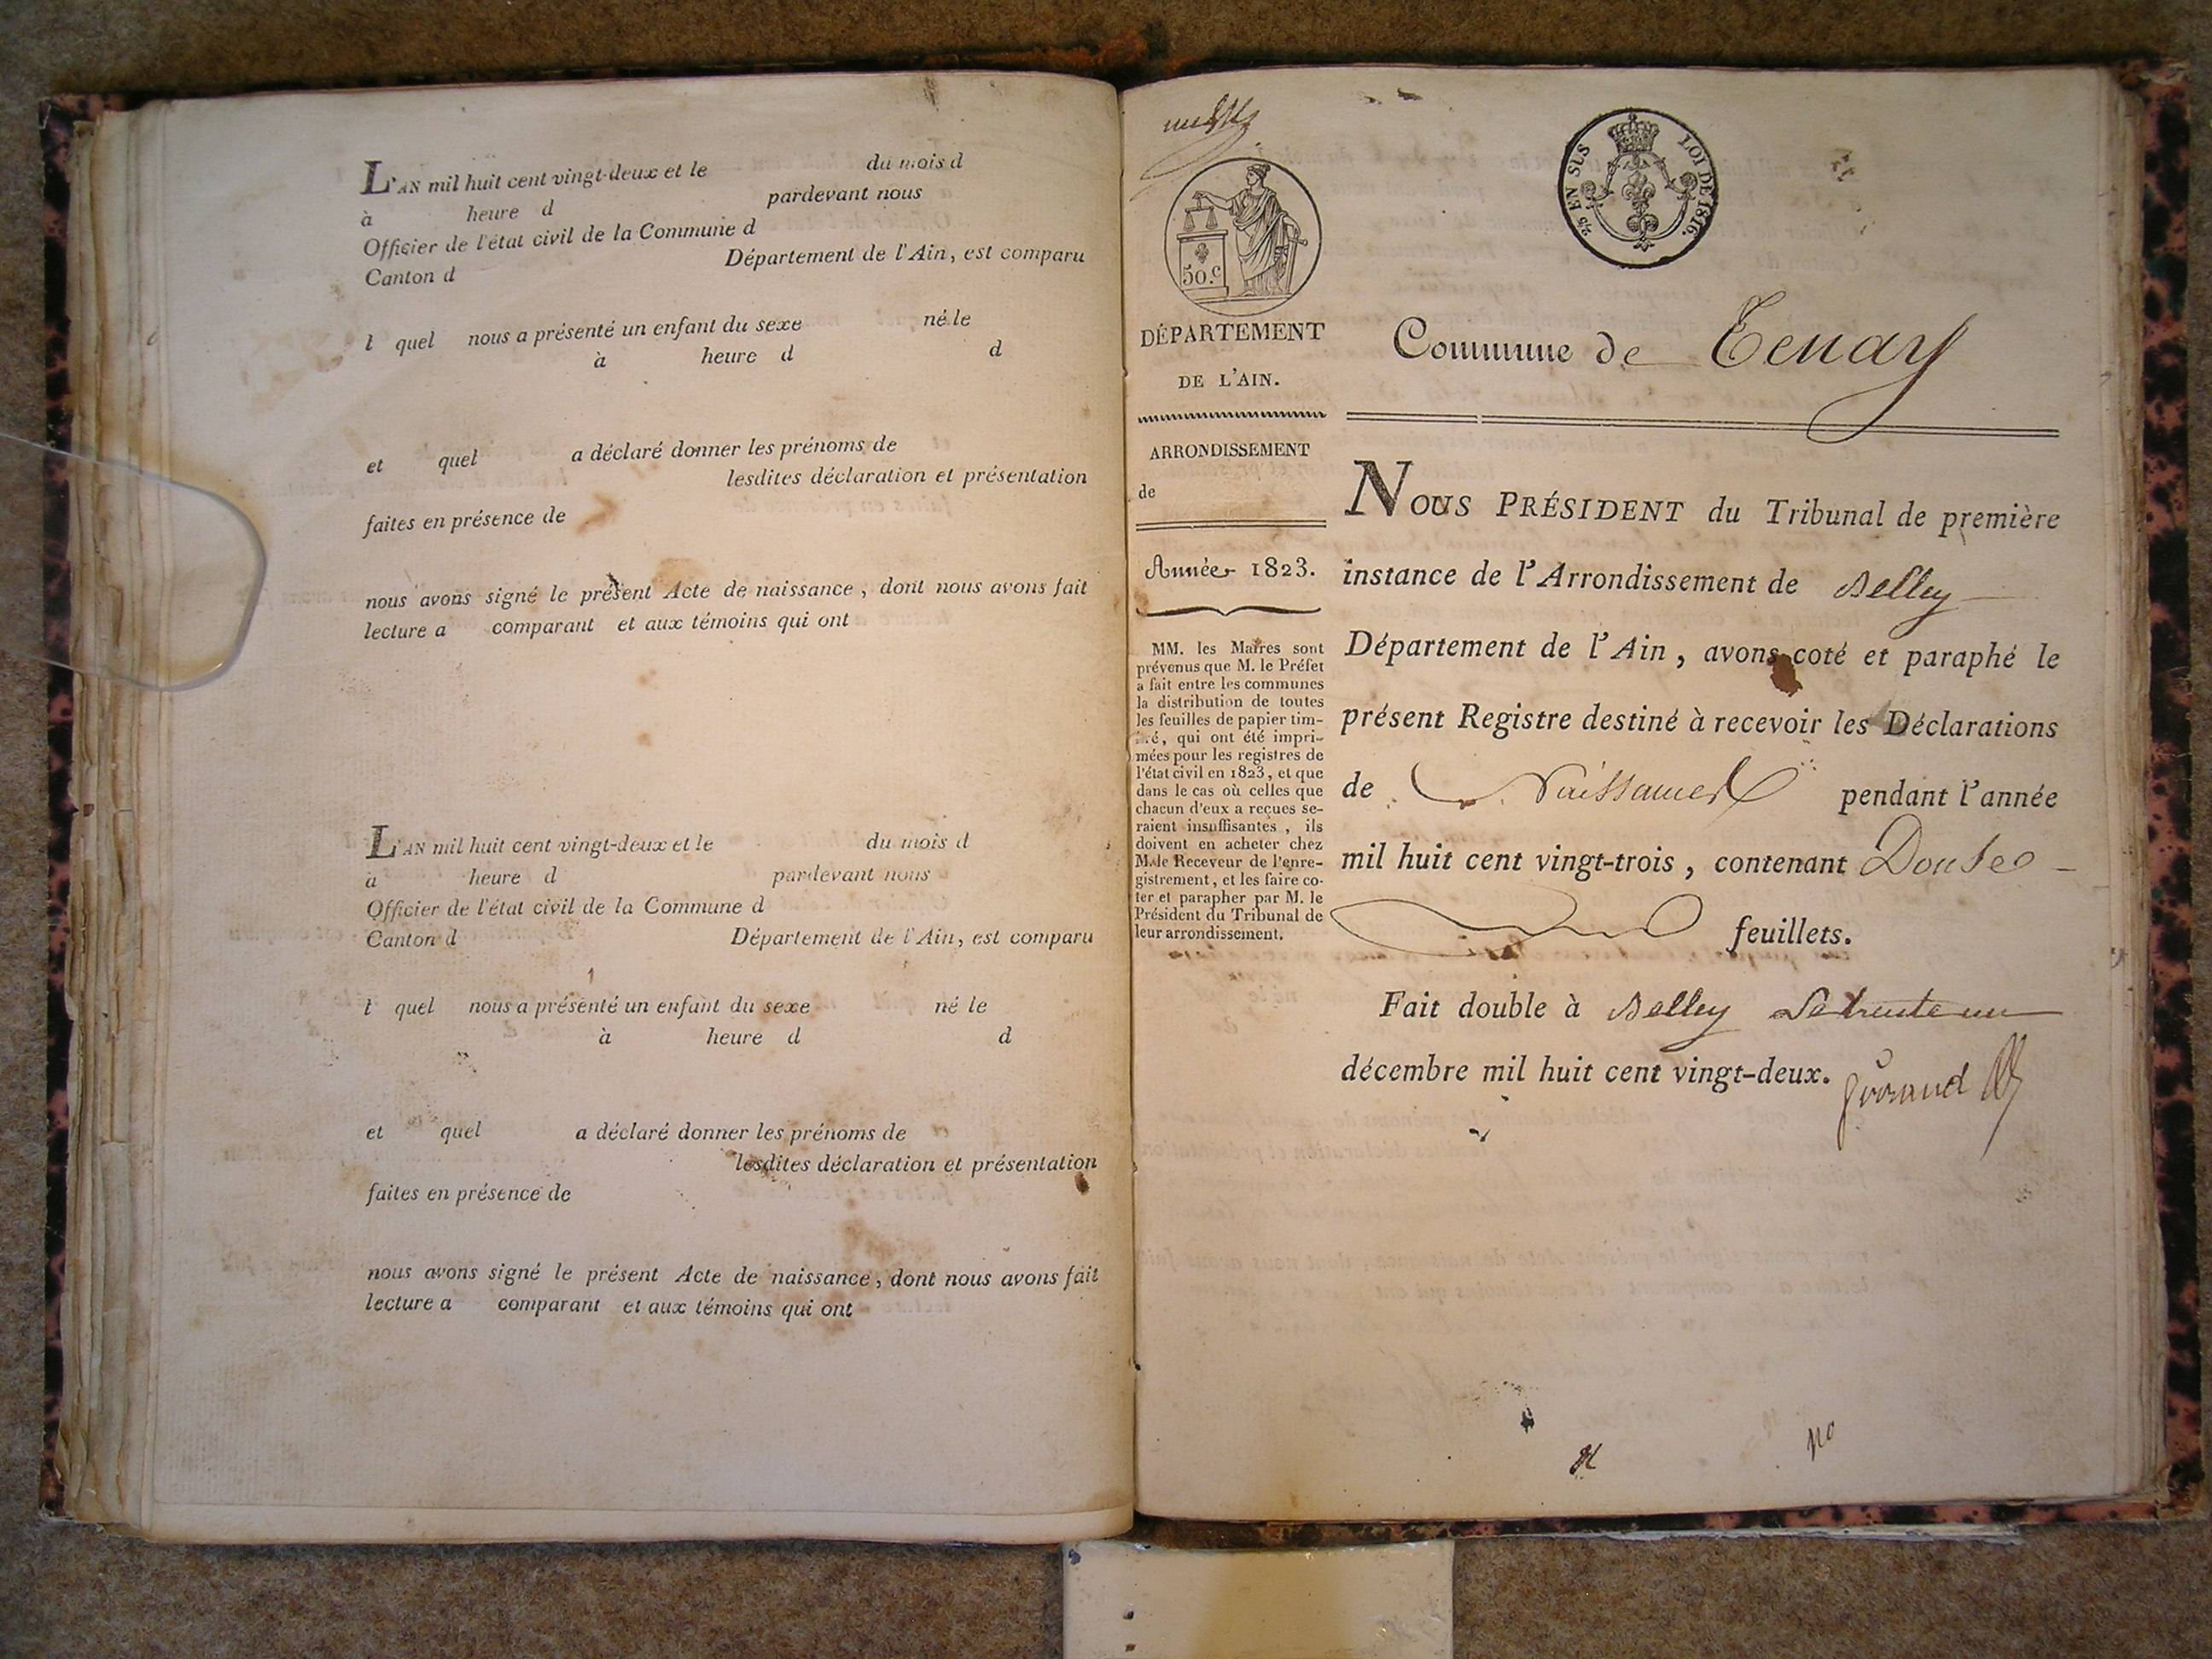 L'AN mil huit cent vingt-deux et le du mois d
à heure d pardevant nous
Officier de l'état civil de la Commune d
Canton d Département de l'Ain, est comparu
l quel nous a présenté un enfant du sexe né le
à heure d d
et quel a déclaré donner les prénoms de
lesdites déclaration et présentation
faites en présence de
nous avons signé le présent Acte de naissance, dont nous avons fait
lecture a comparant et aux témoins qui ont
L'AN mil huit cent vingt-deux et le du mois d
à heure d pardevant nous
Officier de l'état civil de la Commune d
Canton d Département de l'Ain, est comparu
l quel nous a présenté un enfant du sexe né le
à heure d d
et quel a déclaré donner les prénoms de
lesdites déclaration et présentation
faites en présence de
nous avons signé le présent Acte de naissance, dont nous avons fait
lecture a comparant et aux témoins qui ont
50.c
DÉPARTEMENT
DE L'AIN.
ARRONDISSEMENT
de
Année 1823.
MM. les Maires sont
prévenus que M. le Préfet
a fait entre les communes
la distribution de toutes
les feuilles de papier tim-
bré, qui ont été impri-
mées pour les registres de
l'état civil en 1823, et que
dans le cas où celles que
chacun d'eux a reçues se-
raient insuffisantes, ils
doivent en acheter chez
M. le Receveur de l'enre-
gistrement, et les faire co-
ter et parapher par M. le
Président du Tribunal de
leur arrondissement.
25 EN SUS LOI DE 1816.
Commune de Tenay
NOUS PRÉSIDENT du Tribunal de première
instance de l'Arrondissement de Belley
Département de l'Ain, avons coté et paraphé le
présent Registre destiné à recevoir les Déclarations
de Naissances pendant l'année
mil huit cent vingt-trois, contenant Douse
feuillets.
Fait double à Belley Le trente un
décembre mil huit cent vingt-deux.